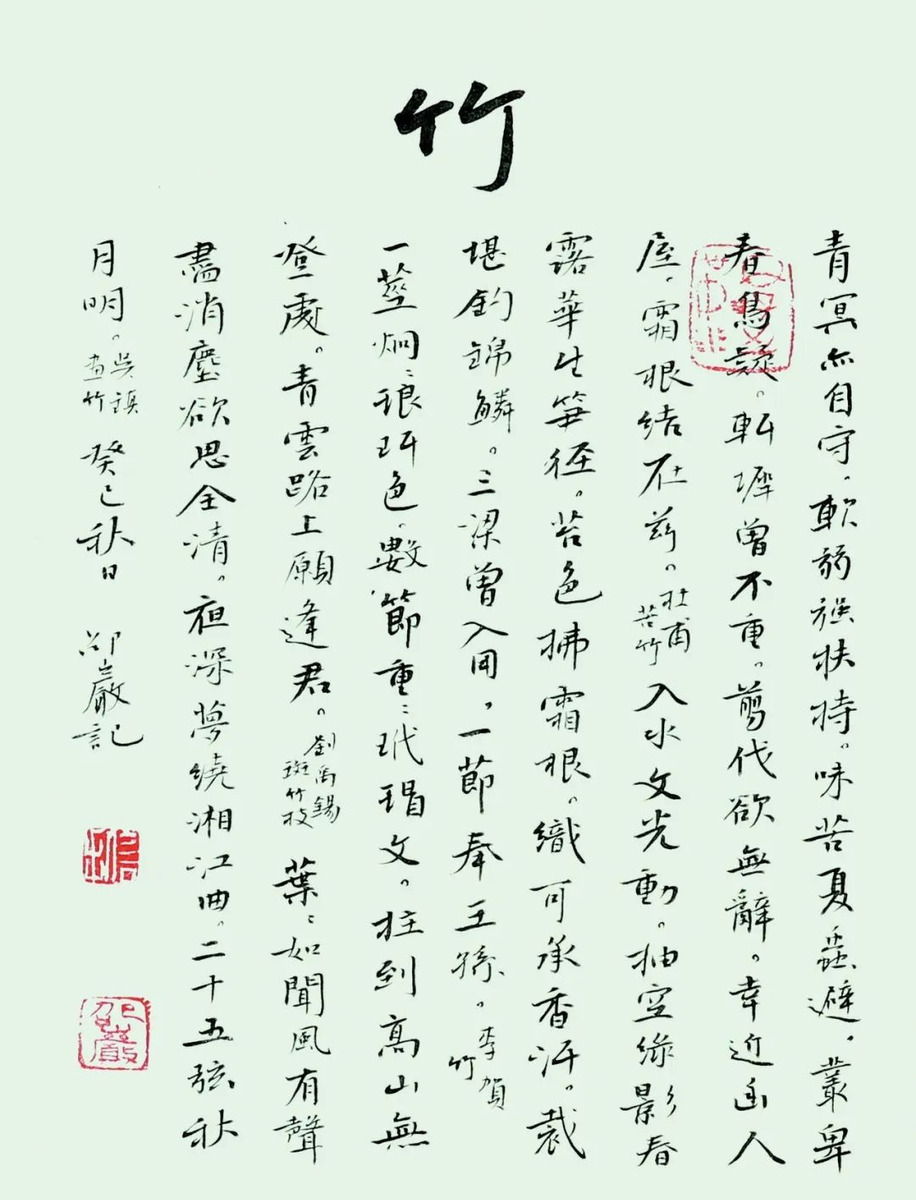 竹
青冥亦自守。軟弱强扶持。味苦夏蟲避。叢卑
春鳥疑。軒墀曾不重。剪伐欲無辭。幸近幽人
屋。霜根結在兹。杜甫苦竹 入水文光動。抽空緑影春
露華生筍徑。苔色拂霜根。織可承香汗。裁
堪釣錦鱗。三梁曾入用，一節奉王孫。李賀竹
一莖炯炯琅玕色。數節重重玳瑁文。拄到高山無
登處。青雲路上願逢君。劉禹錫斑竹枝 葉葉如聞風有聲
盡消塵欲思全清。夜深夢繞湘江曲。二十五弦秋
月明。吴鎮畫竹 癸巳秋日 邵巖記
邵巖